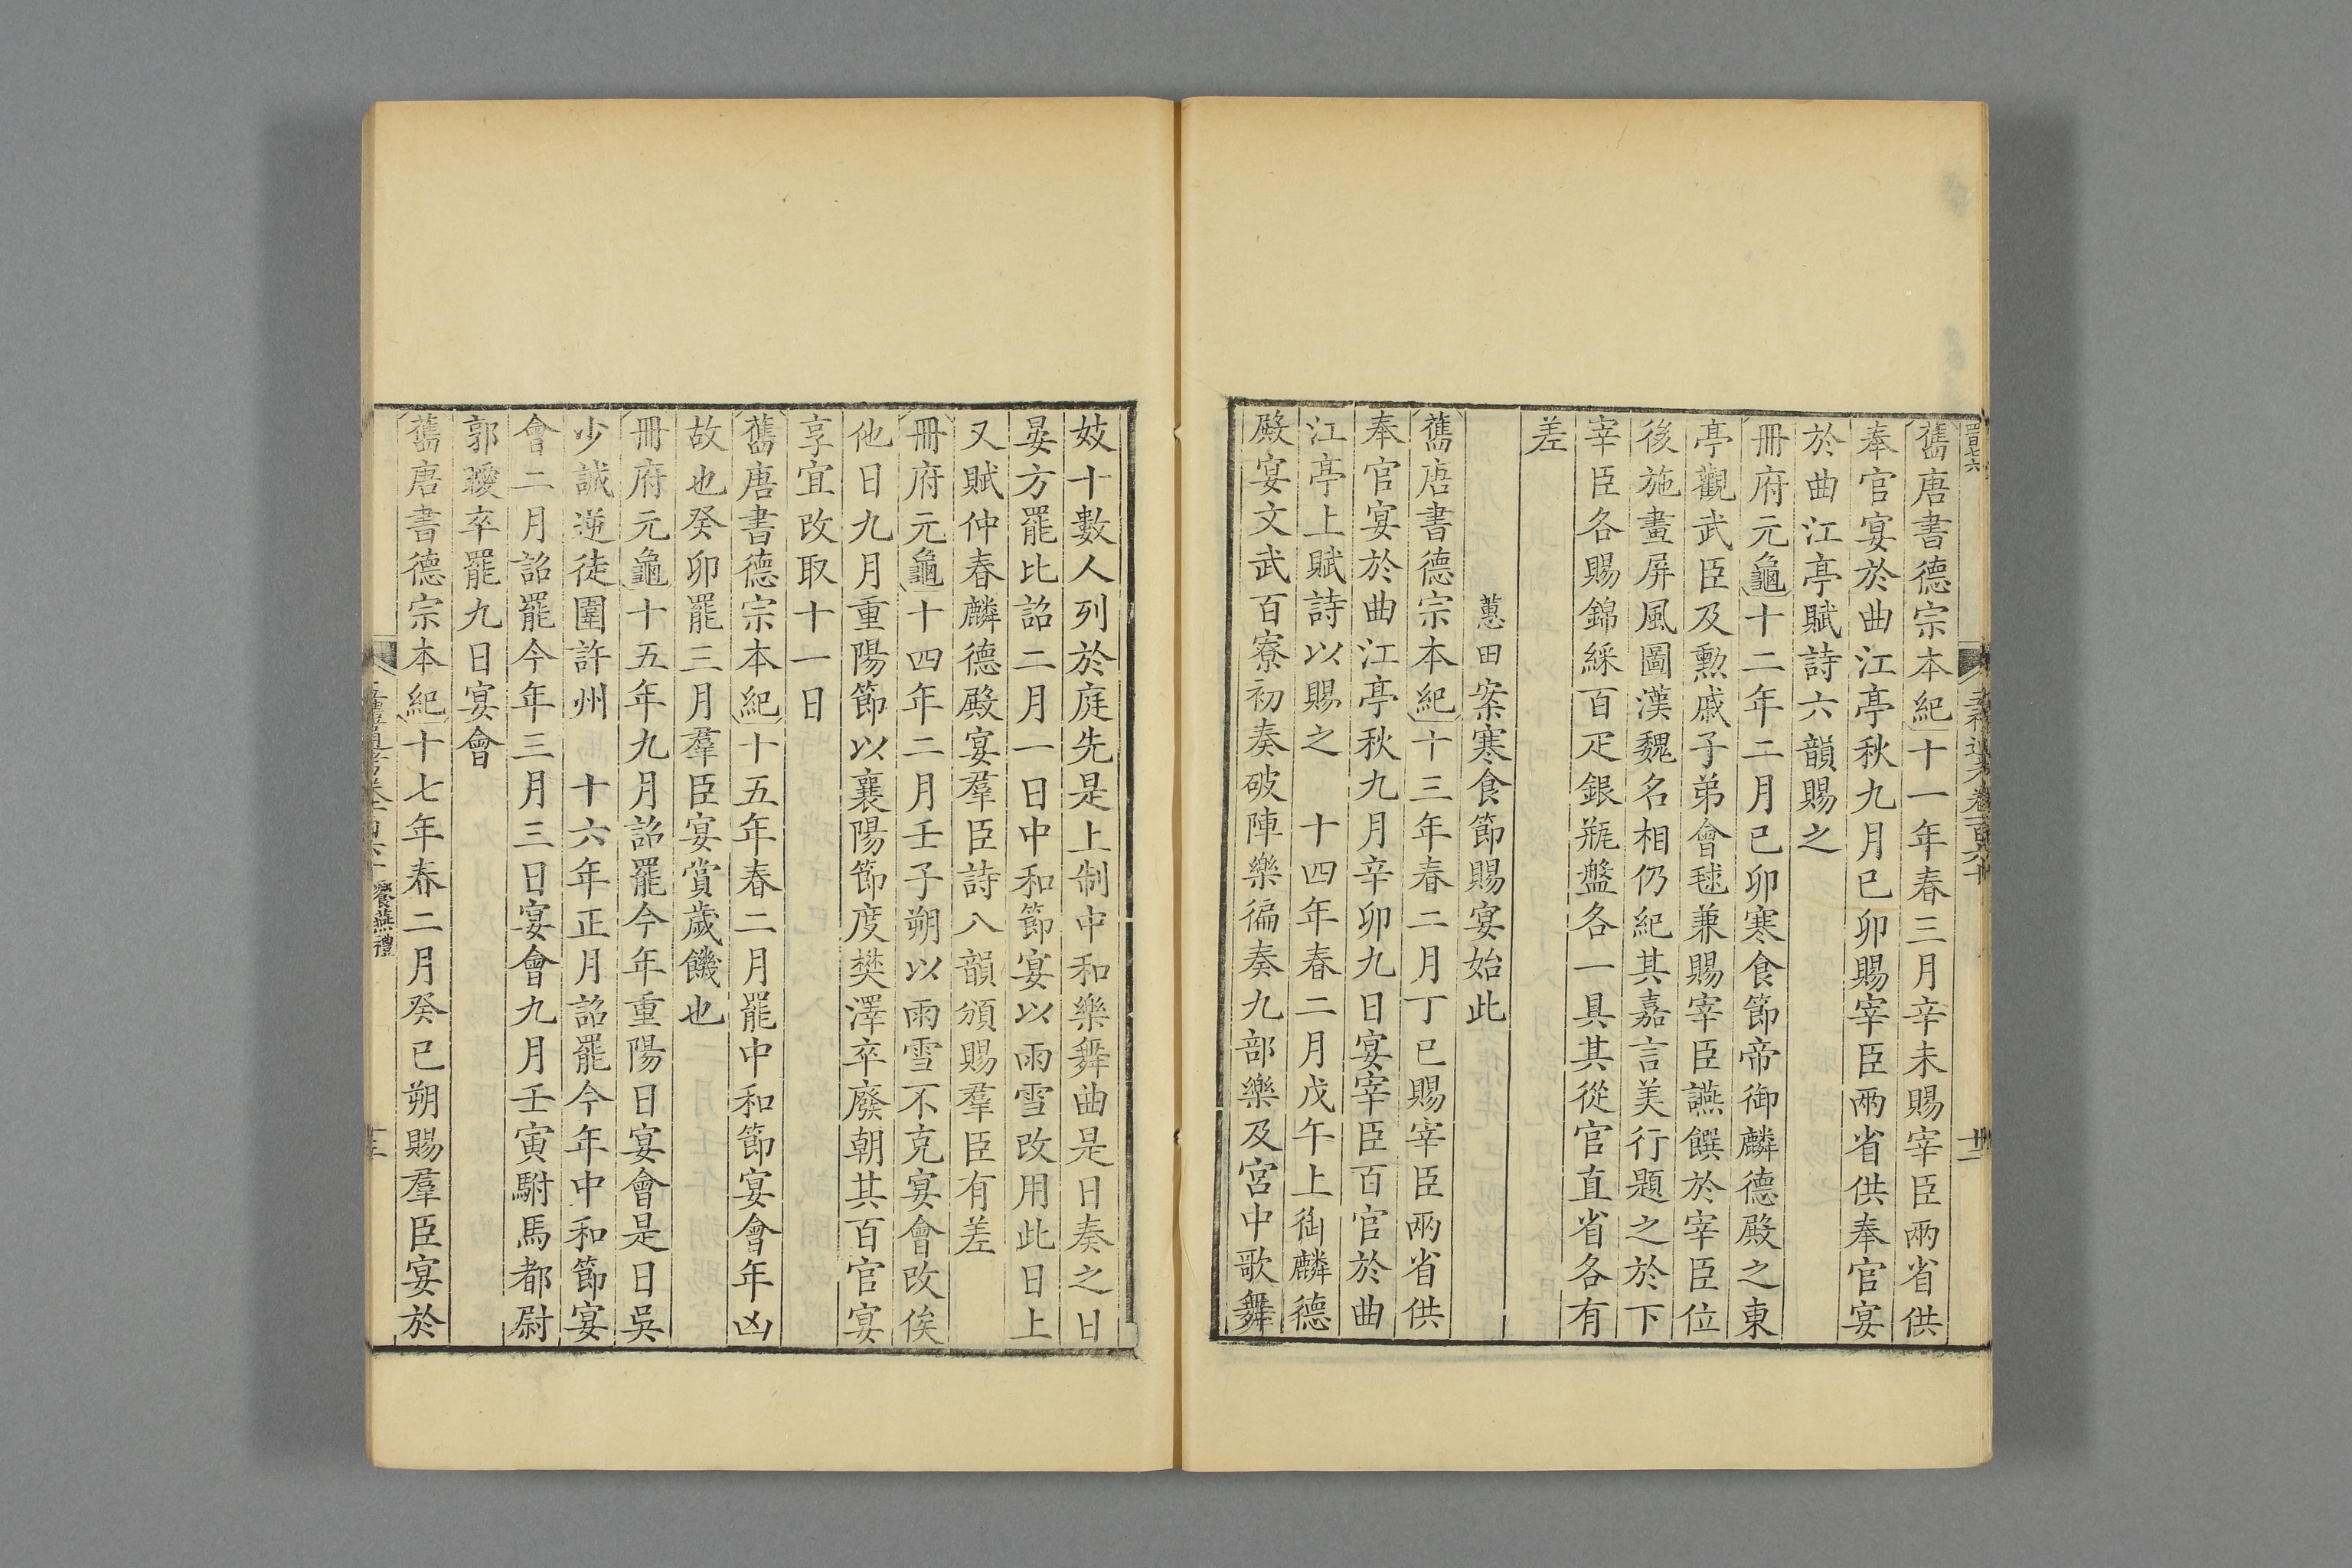 舊唐書德宗本紀十一年春三月辛未賜宰臣兩省供
奉官宴於曲江亭秋九月己卯賜宰臣兩省供奉官宴
於曲江亭賦詩六韻賜之
冊府元龜十二年二月己卯寒食節帝御麟德殿之東
亭觀武臣及勲戚子弟會毬兼賜宰臣讌饌於宰臣位
後施畫屏風圖漢魏名相仍紀其嘉言美行題之於下
宰臣各賜錦綵百疋銀瓶盤各一具其從官直省各有
差
蕙田案寒食節賜宴始此
舊唐書德宗本紀十三年春二月丁巳賜宰臣兩省供
奉官宴於曲江亭秋九月辛卯九日宴宰臣百官於曲
江亭上賦詩以賜之 十四年春二月戊午上御麟德
殿宴文武百寮初奏破陣樂徧奏九部樂及宮中歌舞
妓十數人列於庭先是上制中和樂舞曲是日奏之日
晏方罷比詔二月一日中和節宴以雨雪改用此日上
又賦仲春麟德殿宴羣臣詩八韻頒賜羣臣有差
冊府元龜十四年二月壬子朔以雨雪不克宴會改俟
他日九月重陽節以襄陽節度樊澤卒廢朝其百官宴
享宜改取十一日
舊唐書德宗本紀十五年春二月罷中和節宴會年凶
故也癸卯罷三月羣臣宴賞歲饑也
冊府元龜十五年九月詔罷今年重陽日宴會是日吳
少誠逆徒圍許州 十六年正月詔罷今年中和節宴
會二月詔罷今年三月三日宴會九月壬寅駙馬都尉
郭曖卒罷九日宴會
舊唐書德宗本紀十七年春二月癸巳朔賜羣臣宴於
饗燕禮